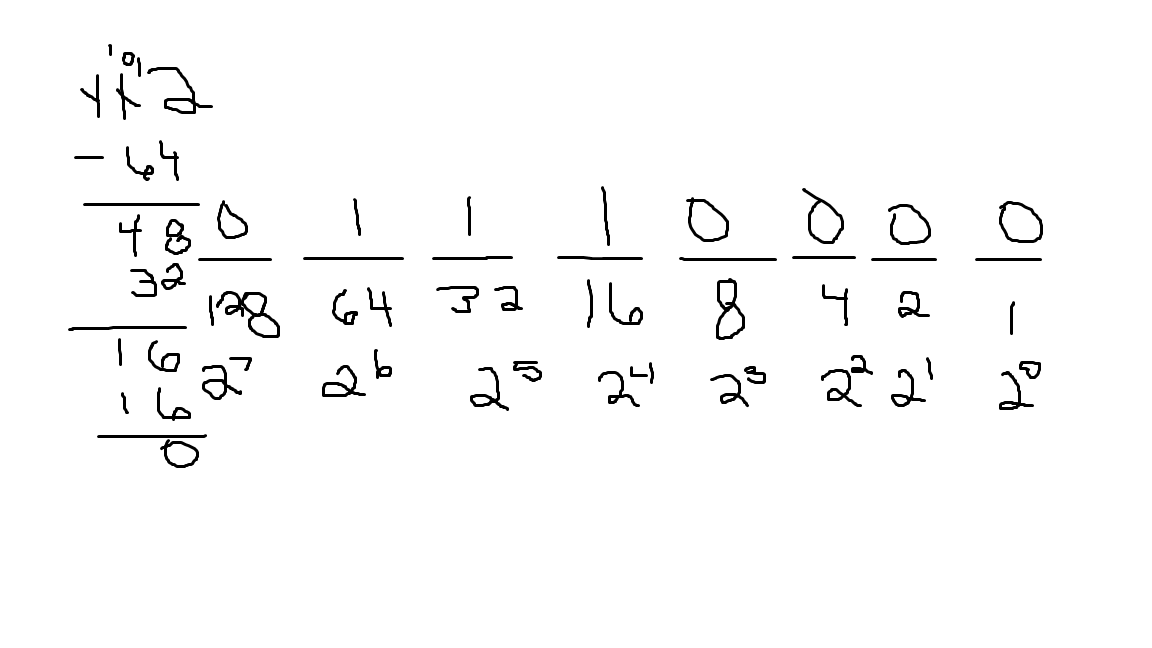 1 0 1
1 1 2
- 64
48
32
16
16
0
0 1 1 1 0 0 0 0
128 64 32 16 8 4 2 1
2⁷ 2⁶ 2⁵ 2⁴ 2³ 2² 2¹ 2⁰